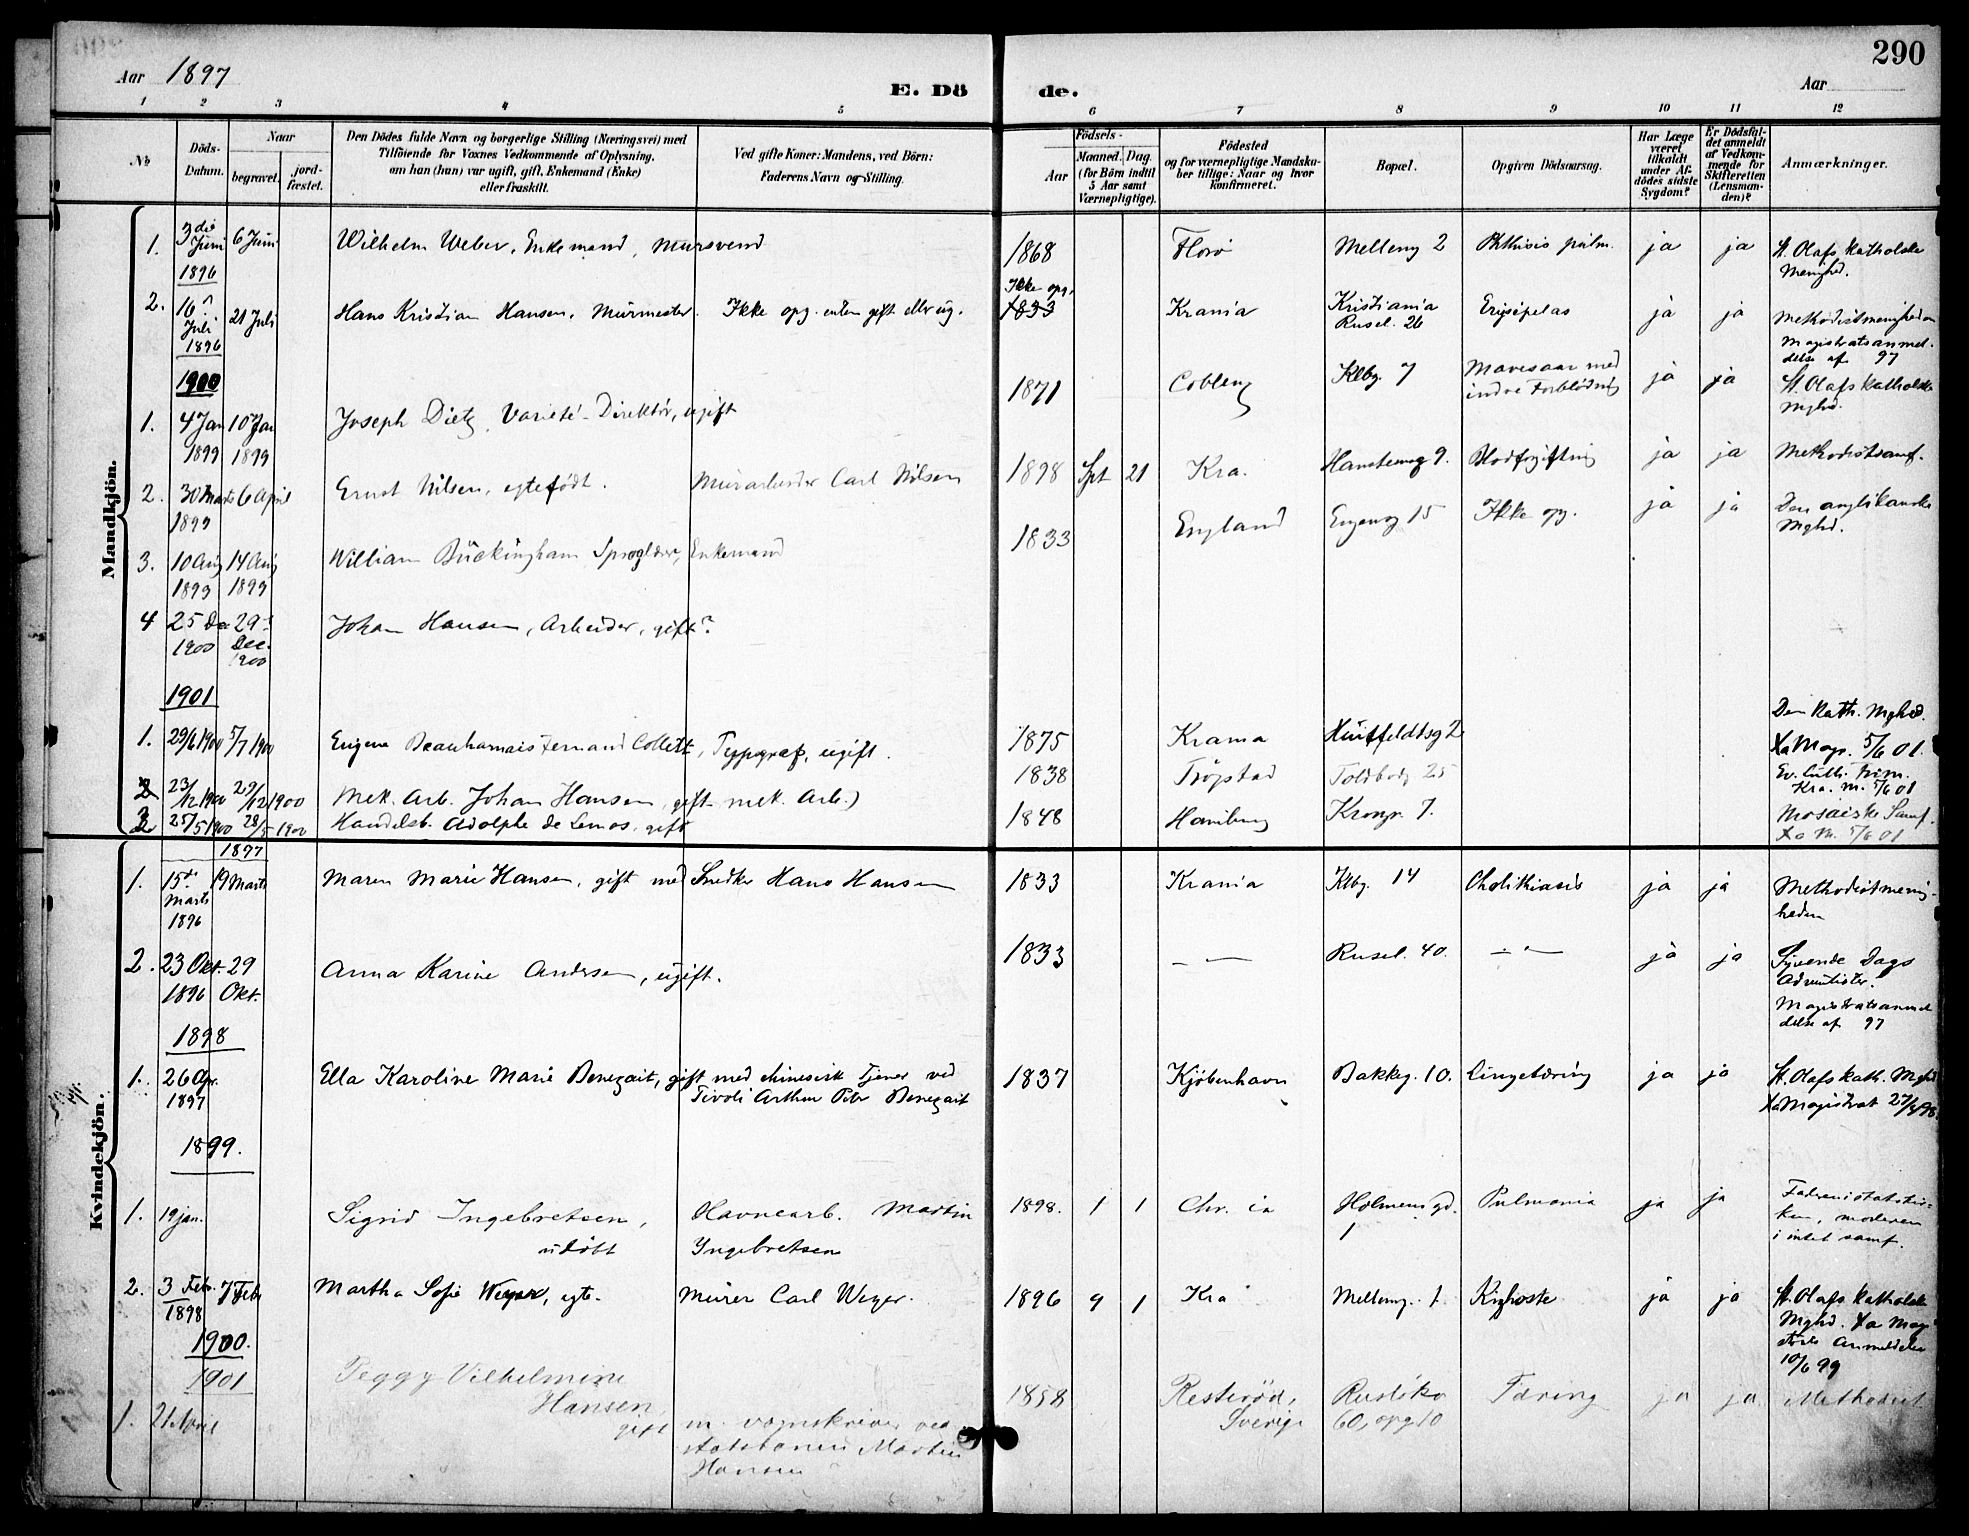 290
Aar 1897
E. Dö de.
Aar
1 2 3 4 5 6 7 8 9 10 11 12
No
Döds-Datum.
Naar
begravet.
jordfæstet.
Den Dödes fulde Navn og borgerlige Stilling (Næringsvei) med
Tilföiende for Voxnes Vedkommende af Oplysning,
om han (hun) var ugift, gift, Enkemand (Enke)
eller fraskilt.
Ved gifte Koner: Mandens, ved Börn:
Faderens Navn og Stilling.
Födsels-
Aar
Maaned. Dag.
(for Börn indtil
5 Aar samt
Værnepligtige).
Födested
og for værnepligtige Mandska-
ber tillige: Naar og hvor
konfirmeret.
Bopæl.
Opgiven Dödsaarsag.
Har Læge
været
tilkaldt
under Af-
dödes sidste
Sygdom?
Er Dödsfal-
det anmeldt
af Vedkom-
mende for
Skifteretten
(Lensman-
den)?
Anmærkninger.
Mandkjön.
1. 3die Juni 1896 6 Juni Wilhelm Weber, Enkemand, Mursvend 1868 Florö Melleng 2 Phthisis pulm. ja ja St. Olafs katholske
Menghd.
2. 16 Juli 1896 21 Juli Hans Kristian Hansen, Murmester. Ikke opg. enten gift eller ug. Ikke opg. 1833 Krania Kristiania
Rusel. 26 Erysipelas ja ja Methodistmenigheden
Magistratsanmel-
delse af 97
1900
1. 4 Jan 1899 10 Jan 1899 Joseph Dietz, Varieté-Direktör, ugift 1871 Coblenz Klbg. 7 Mavesaar med
indre Forblödning ja ja St. Olafs katholske
Mghd.
2. 30 Marts 1899 6 April Ernst Nilsen, egtefödt. Murarbeider Carl Nilsen 1898 Spt 21 Kra. Hansteensg 9. Blodforgiftning ja ja Methodistsamf.
3. 10 Aug 1899 14 Aug 1899 William Buckingham Sproglærer, Enkemand 1833 England Eugensg 15 Ikke opg. ja ja Den anglikanske
Mghd.
4 25 Dec 1900 29 Dec. 1900 Johan Hansen, Arbeider, gift?
1901
1. 29/6 1900 5/7 1900 Eugene Beauharnais Fernand Collett, Typograf, ugift. 1875 Krania Huitfeldtsg 2 Den Kath. Mghd.
Kra Magr. 5/6 01.
2 23/12 1900 29/12 1900 Mek. Arb. Johan Hansen, gift mek. Arb.) 1838 Tröpstad Toldbodg 25 Ev. Luth. frim.
Kra. m. 5/6 01
3 25/5 1900 28/5 1900 Handelsb. Adolphe de Lemos, gift 1848 Hamburg Krongr. 7. Mosaiske Samf.
Kra M. 5/6 01
Kvindekjön.
1897
1. 15de Marts 1896 19 Marts Maren Marie Hansen, gift med Snedker Hans Hansen 1833 Krania Klbg. 14 Cholithiasis ja ja Methodistmenig-
heden
2. 23 Okt. 1896 29 Okt. Anna Karine Andersen, ugift. 1833 — — Rusel. 40. — " — ja ja Syvende Dags
Adventister.
Magistratsanmel
delse af 97
1898
1. 26 Apr. 1897 Ella Karoline Marie Benezait, gift med chinesisk Tjener ved
Tivoli Arthur Petr Benezait 1837 Kjöbenhavn Bakkeg. 10. Lungetæring ja ja St. Olafs kath. Mghd
Kra Magistrat 27/4 98
1899.
1. 19 jan. Sigrid Ingebretsen,
udöbt Havnearb. Martin
Ingebretsen 1898. 1 1 Chr. ia Holmensgd.
1 Pulmonia ja ja Faderen i statskir-
ken, moderen
i intet samf.
2. 3 Feb. 1898 7 Feb Martha Sofie Weyer, egte. Murer Carl Weyer. 1896 9 1 Kra Melleng. 1. Kighoste ja ja St. Olafs katholske
Mghd. Kra Magi
strats Anmeldelse
10/6 99
1900.
1901
1. 21 April Peggy Vilhelmine
Hansen,
gift m. vognskriver ved
statsbanen Martin
Hansen 1858 Resteröd,
Sverige Ruslökv
60, opg 10 Tæring ja ja. Methodist